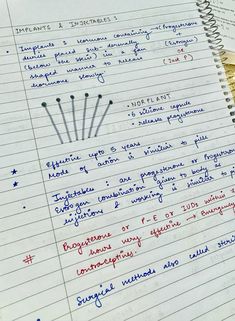 IMPLANTS & INJECTABLES :
• Implants : hormone containing → Progesterone
devices placed sub-dermally (Estrogen)
(below the skin) in a fan or
shaped manner to release (      P)
hormone slowly
• NORPLANT
- 6 silicone capsule
- releases progesterone
* Effective upto 5 years
* Mode of action is similar to pills
Injectables : are progesterone or Progesterone
Estrogen combination given to body as
injections & working is similar to
# Progesterone or P-E or IUDs within
hours very effective → Emergency
contraceptives.
Surgical methods also called